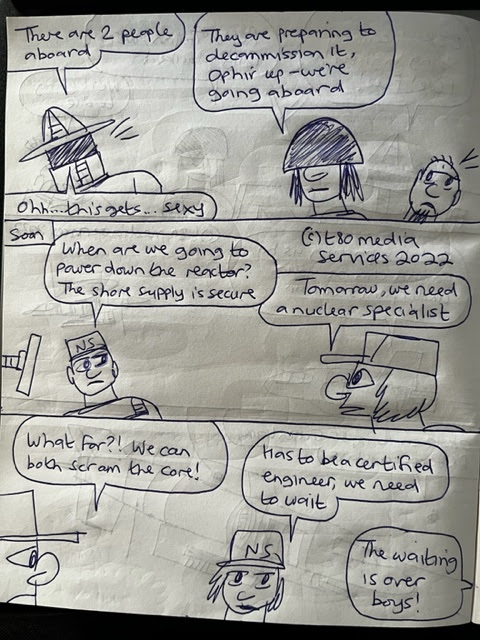 There are 2 people
aboard
They are preparing to
decommission it,
Ophir up - we're
going aboard
Ohh....this gets... sexy
Soon
When are we going to
power down the reactor?
The shore supply is secure
(c) t80 media
services 2022
Tomorrow, we need
a nuclear specialist
NS
What for?! We can
both scram the core!
Has to be a certified
engineer, we need
to wait
NS
The waiting
is over
boys!